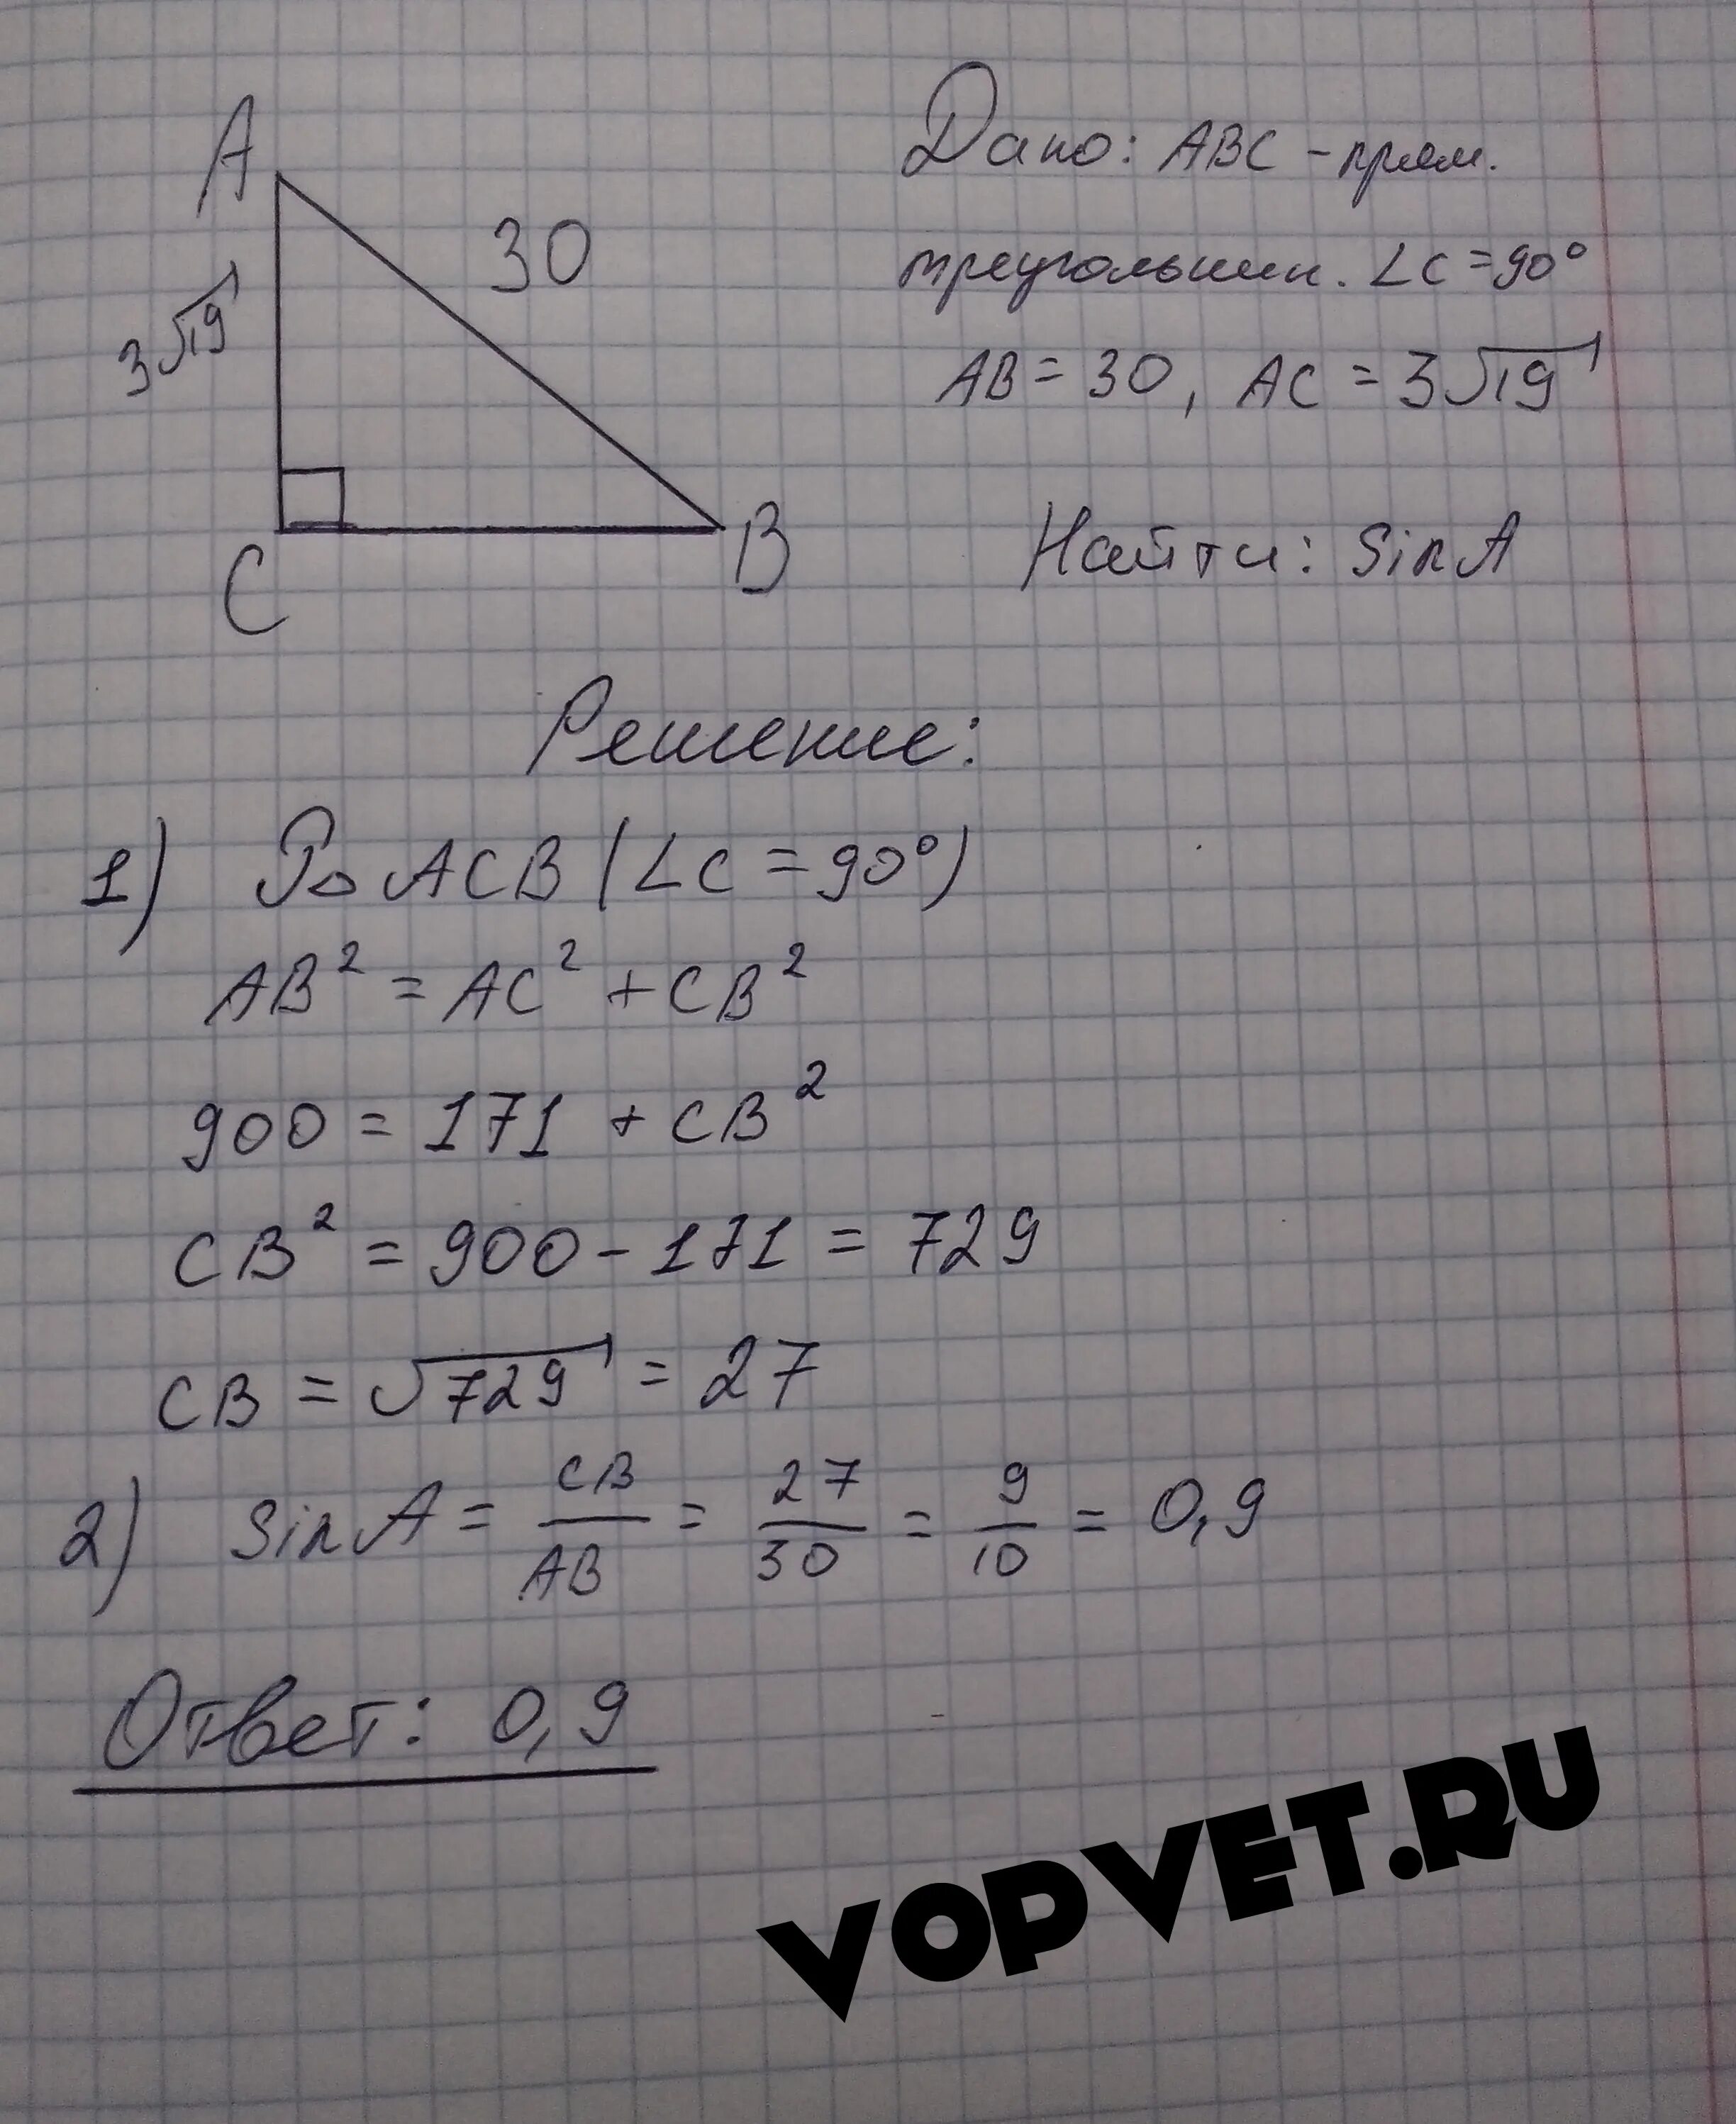 A
30
3√19
C
B
Дано: ABC - прям.
треугольник. ∠C = 90°
AB = 30, AC = 3√19
Найти: sin A
Решение:
1) Р▵ ACB (∠C = 90°)
AB² = AC² + CB²
900 = 171 + CB²
CB² = 900 - 171 = 729
CB = √729 = 27
2) sin A = CB/AB = 27/30 = 9/10 = 0,9
Ответ: 0,9
VOPVET.RU